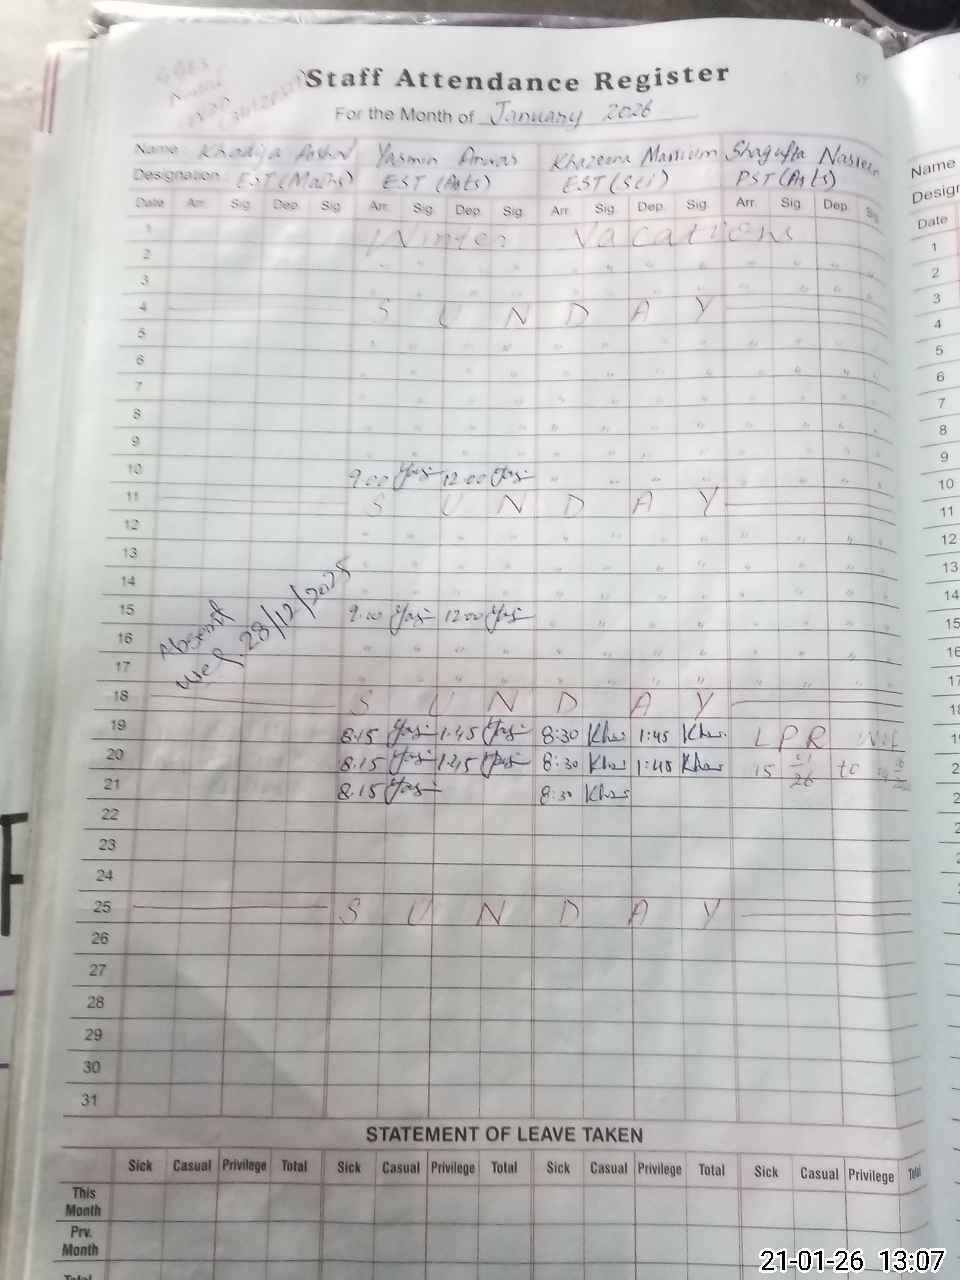 Staff Attendance Register
For the Month of January 2026
Name Khadija Yasmin Anwar Khazeena Marrium Shagufta Nasreen
Designation EST (Maths) EST (Arts) EST (Sci) PST (Arts)
Date Arr. Sig. Dep. Sig. Arr. Sig. Dep. Sig. Arr. Sig. Dep. Sig. Arr. Sig. Dep. Sig.
1 Winter Vacations
2
3
4 S U N D A Y
5
6
7
8
9
10 9.00 Yas 12.00 Yas
11 S U N D A Y
12
13
14
15 9.00 Yas 12.00 Yas
16
17
Absent
wef. 28/12/2025
18 S U N D A Y
19 8.15 Yas 1.45 Yas 8:30 Khaz 1:45 Khaz LPR wef
20 8.15 Yas 1.45 Yas 8:30 Khaz 1:45 Khaz 15 26 to
21 8.15 Yas 8:30 Khaz
22
23
24
25 S U N D A Y
26
27
28
29
30
31
STATEMENT OF LEAVE TAKEN
Sick Casual Privilege Total Sick Casual Privilege Total Sick Casual Privilege Total Sick Casual Privilege Total
This Month
Prv. Month
Total
Name
Date
1
2
3
4
5
6
7
8
9
10
11
12
13
14
15
16
17
21-01-26 13:07